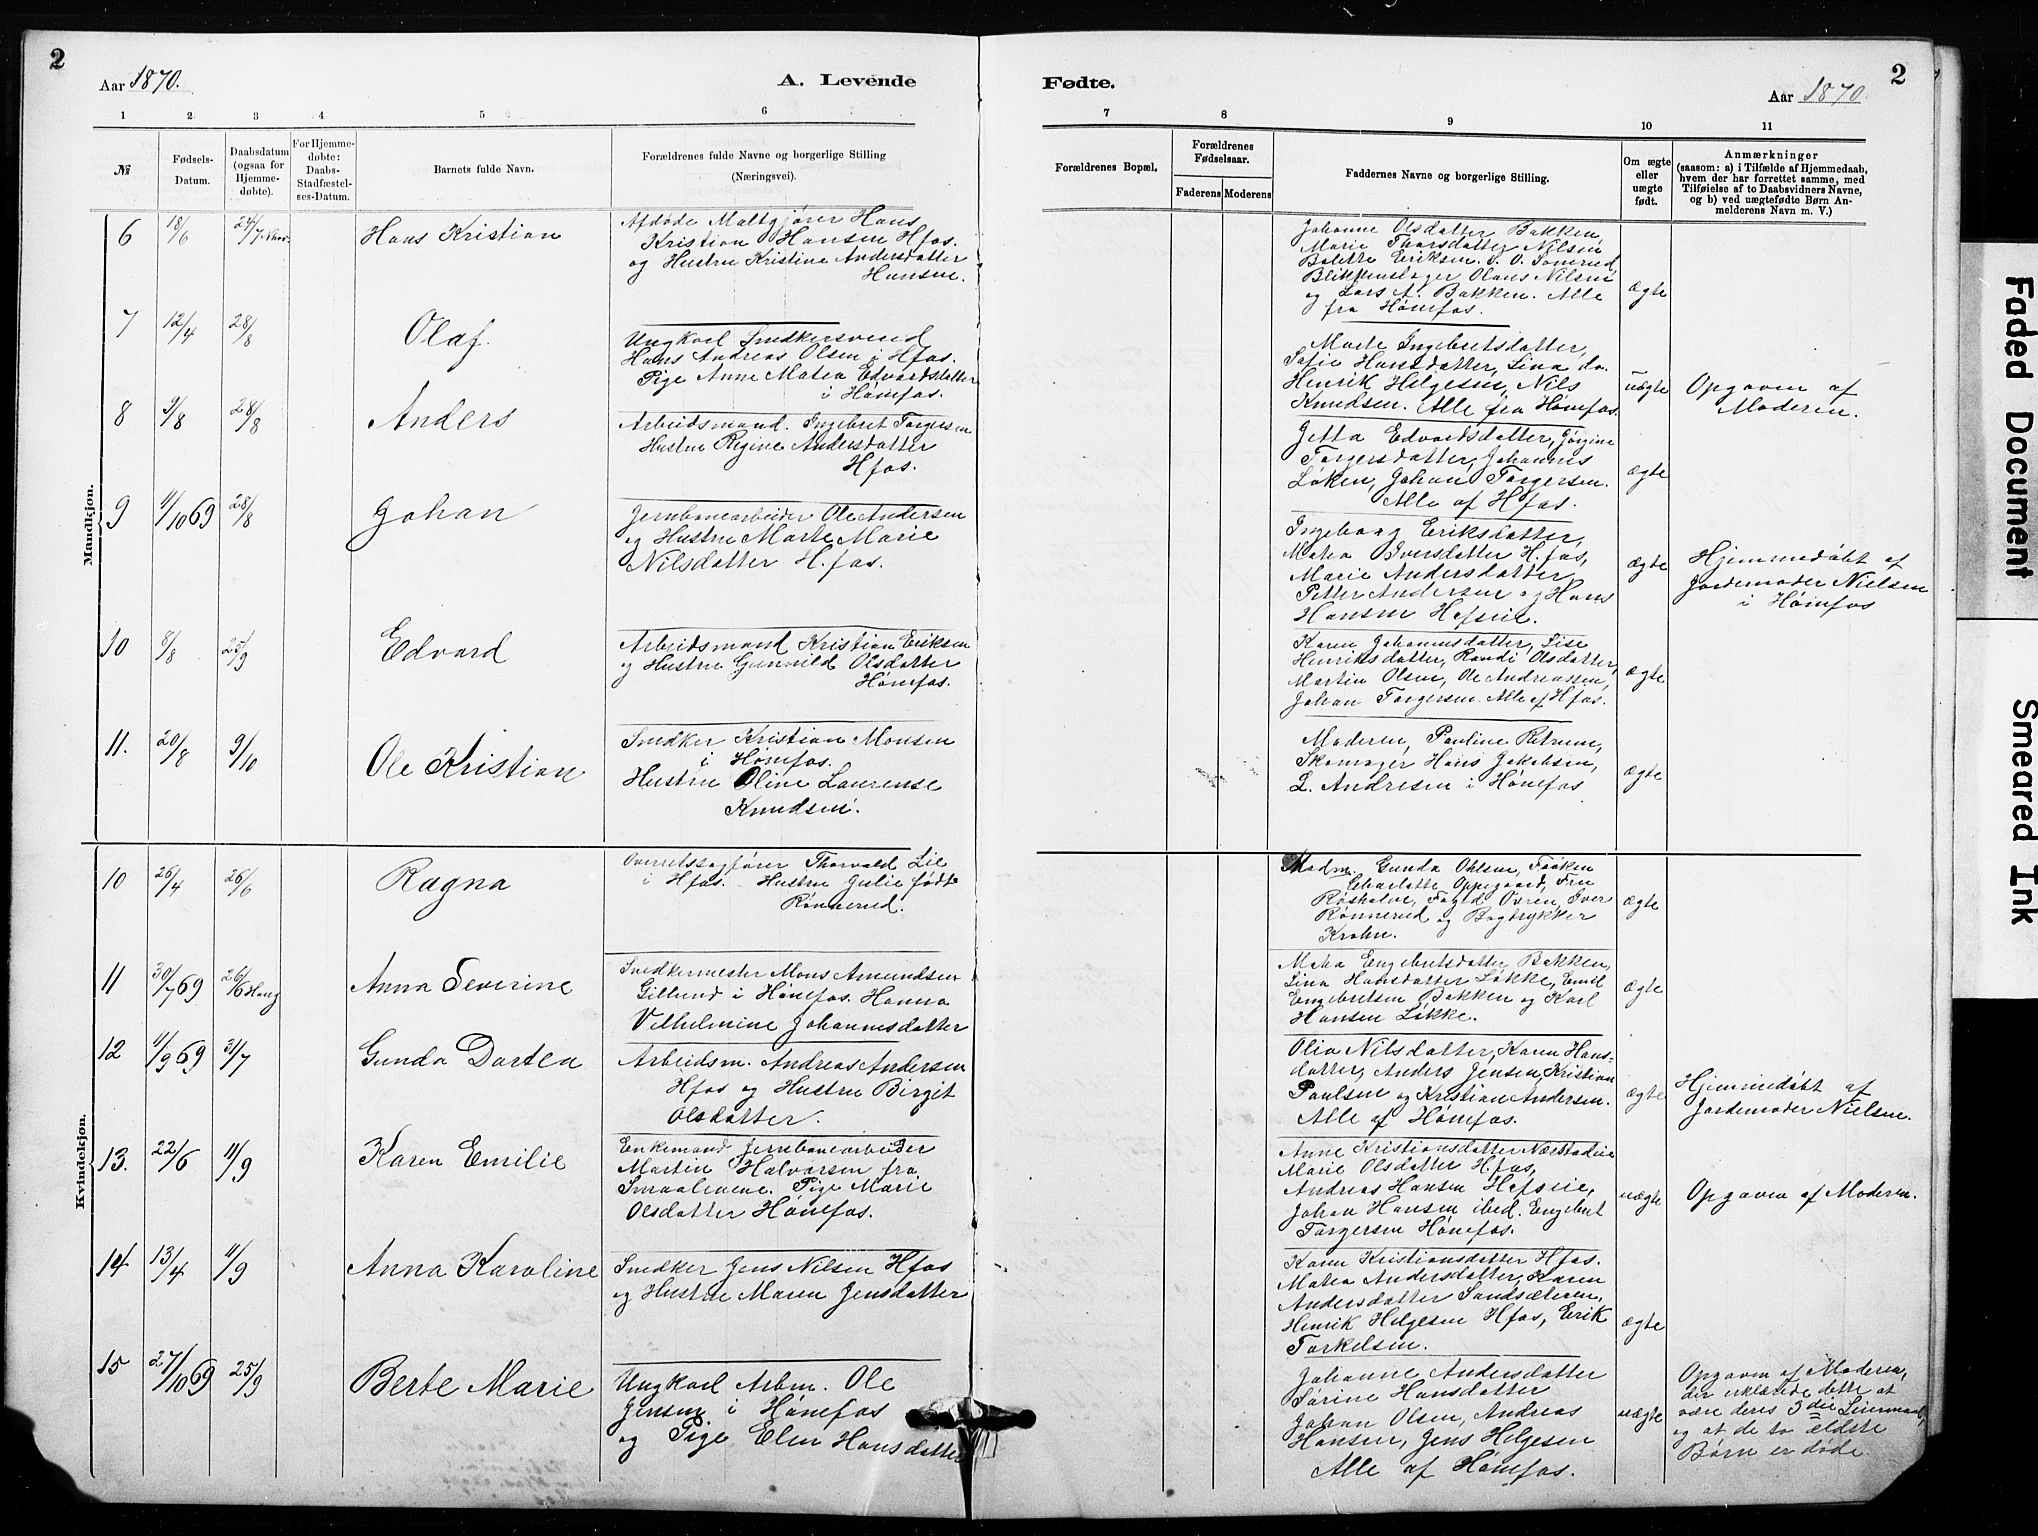 2
Aar 1870.
A. Levende
1 2 3 4 5 6
№
Fødsels-
Datum.
Daabsdatum
(ogsaa for
Hjemme-
døbte).
For Hjemme-
døbte:
Daabs-
Stadfæstel-
ses-Datum.
Barnets fulde Navn.
Forældrenes fulde Navne og borgerlige Stilling
(Næringsvei).
Mandkjøn.
6 18/6 24/7 Hans Kristian
Afdøde Maltgjører Hans
Kristian Hansen Hfos.
og Hustru Kristine Andersdatter
Hansen.
7 12/4 28/8 Olaf.
Ungkarl Snedkersvend
Hans Andreas Olsen i Hfos.
Pige Anne Matea Edvardsdatter
i Hønefos.
8 9/8 28/8 Anders
Arbeidsmand. Ingebret Torgersen
Hustru Regine Andersdatter
Hfos.
9 11/10 69 28/8 Johan
Jernbanearbeider Ole Andersen
og Hustru Marte Marie
Nilsdatter H.fos.
10 8/8 25/9 Edvard
Arbeidsmand Kristian Eriksen
og Hustru Gunnild Olsdatter
Hønefos.
11. 20/8 9/10 Ole Kristian
Snedker Kristian Monsen
i Hønefos.
Hustru Oline Laurense
Knudsen.
Kvindekjøn.
10 26/4 26/6 Ragna
Overretssagfører Thorvald Lie
i Hfos. Hustru Julie født
Rønnerud.
11 30/7 69 26/6 Haug Anna Severine
Snedkermester Mons Amundsen
Gillund i Hønefos. Hanna
Vilhelmine Johannesdatter
12 11/9 69 31/7 Gunda Dortea
Arbeidsm. Andreas Andersen
Hfos og Hustru Birgit
Olsdatter.
13. 22/6 11/9 Karen Emilie
Enkemand Jernbanearbeider
Martin Halvorsen fra
Smaalenene. Pige Marie
Olsdatter Hønefos.
14 13/4 11/9 Anna Karoline
Snedker Jens Nilsen Hfos
og Hustru Maren Jensdatter
15 27/10 69 25/9 Berte Marie
Ungkarl Arbm. Ole
Jensen i Hønefos
og Pige Elen Hansdatter
Fødte.
2
Aar 1870.
7 8 9 10 11
Forældrenes Bopæl.
Forældrenes
Fødselsaar.
Faderens Moderens
Faddernes Navne og borgerlige Stilling.
Om ægte
eller
uægte
født.
Anmærkninger
(saasom: a) i Tilfælde af Hjemmedaab,
hvem der har forrettet samme, med
Tilføielse af to Daabsvidners Navne,
og b) ved uægtefødte Børn An-
melderens Navn m. V.)
Johanne Olsdatter Bakken,
Marie Thorsdatter Nilsen
Bolette Eriksen. S. O. Somrud,
Blikkenslager Olaus Nilsen
og Lars A. Bakken. Alle
fra Hønefos.
ægte
Marte Ingebretsdatter,
Sofie Hansdatter, Lina do.
Henrik Helgesen, Nils
Knudsen. Alle fra Hønefos.
uægte
Opgaven af
Moderen.
Jetta Edvardsdatter, Jørgine
Torgersdatter, Johannes
Løken, Johan Torgersen.
Alle af Hfos.
ægte
Ingeborg Eriksdatter,
Matea Iversdatter H.fos,
Marie Andersdatter,
Petter Andersen og Hans
Hansen Hofseie.
ægte
Hjemmedøbt af
Jordemoder Nielsen
i Hønefos
Karen Johannesdatter, Lise
Henriksdatter, Randi Olsdatter,
Martin Olsen, Ole Andreassen,
Johan Torgersen. Alle af Hfos.
ægte
Moderen, Pauline Petersen,
Skomager Hans Jakobsen,
L. Andresen i Hønefos
ægte
Madm. Gunda Ohlsen, Frøken
Charlotte Oppegaard, Fru
Røsholm, Foged Ovren, Iver
Rønnerud og Bogtrykker
Krohn.
ægte
Matea Engebretsdatter Bakken,
Lina Hansdatter Løkke, Emil
Engebretsen Bakken og Karl
Hansen Løkke.
ægte
Olia Nilsdatter, Karen Hans-
datter, Anders Jensen, Kristian
Paulsen og Kristian Andersen.
Alle af Hønefos.
ægte
Hjemmedøbt af
Jordemoder Nielsen.
Anne Kristiansdatter Næsstadeie
Marie Olsdatter H.fos,
Andreas Hansen Hofseie,
Johan Hansen ibid. Engebret
Torgersen Hønefos.
uægte
Opgaven af Moderen.
Karen Kristiansdatter Hfos.
Matea Andersdatter, Karen
Andersdatter Sandsæteren,
Henrik Helgesen Hfos, Erik
Torkelsen.
ægte
Johanne Andersdatter
Sørine Hansdatter
Johan Olsen, Andreas
Hansen, Jens Helgesen
Alle af Hønefos.
uægte
Opgaven af Moderen,
der erklærede dette at
være deres 3die Leiermaal,
og at de to ældste
Børn er døde
Faded Document
Smeared Ink